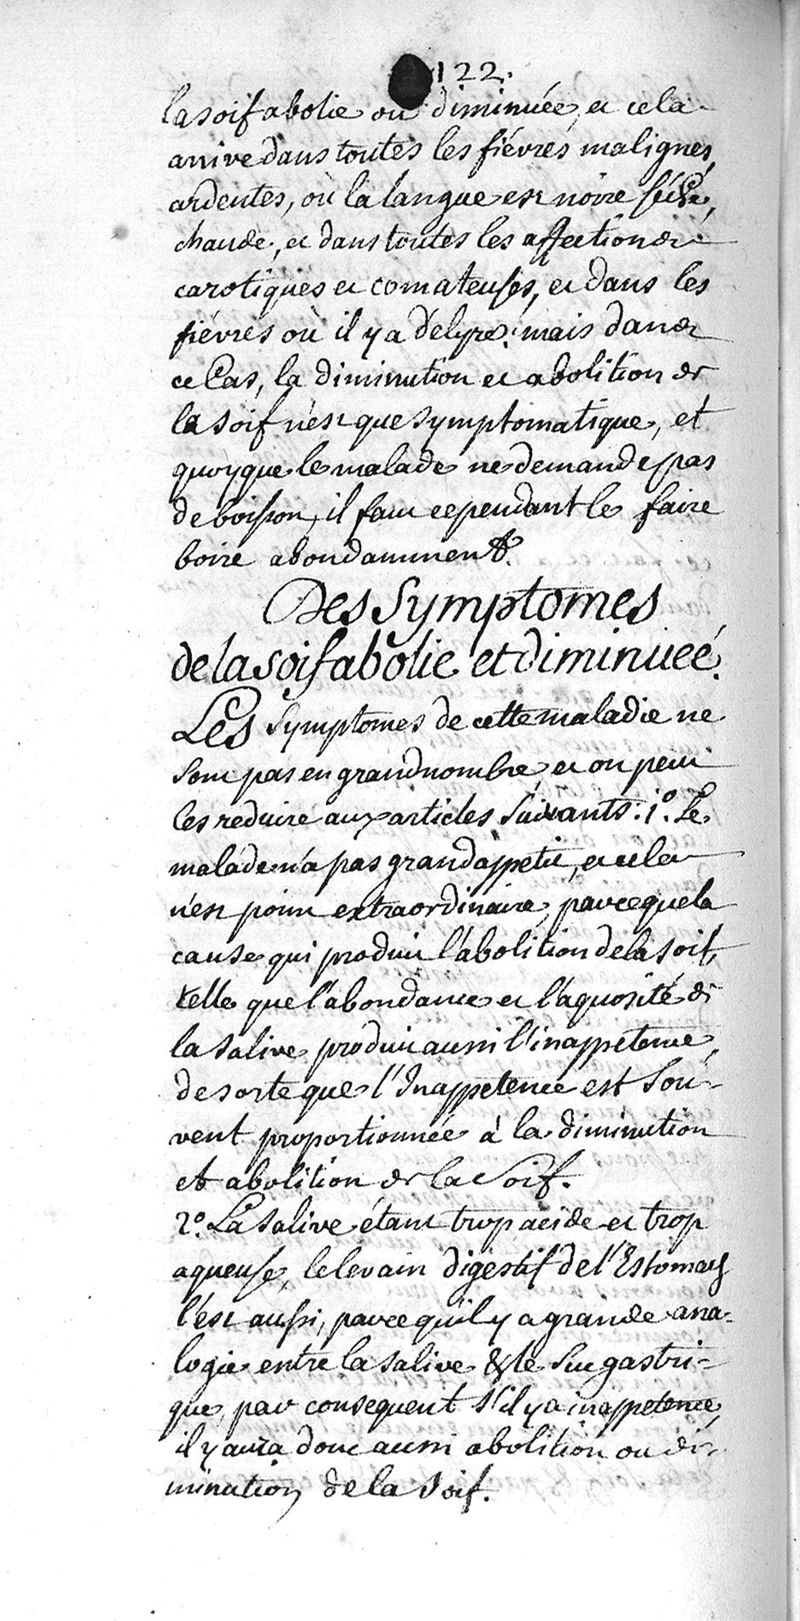 122.
la soif abolie ou diminuée, et cela
arrive dans toutes les fiévres malignes,
ardentes, où la langue est noire séche,
chaude, et dans toutes les affections
carotiques et comateuses, et dans les
fiévres où il y a délyre: mais dans
ce Cas, la diminution et abolition de
la soif n'est que symptomatique, et
quoyque le malade ne demande pas
de boisson, il faut cependant le faire
boire abondamment.
Des Symptomes
de la soif abolie et diminueé.
Les Symptomes de cette maladie ne
sont pas en grand nombre, et on peut
les reduire aux articles suivants. 1.° Le
malade n'a pas grand appetit, et cela
n'est point extraordinaire, parceque la
cause qui produit l'abolition de la soif,
telle que l'abondance et l'aquosité de
la salive produit aussi l'inappétence,
de sorte que l'Inappetence est sou-
vent proportionnée à la diminution
et abolition de la soif.
2.° La salive étant trop acide et trop
aqueuse, le levain digestif de l'Estomach
l'est aussi, parce qu'il y a grande ana-
logie entre la salive & le suc gastri-
que, par consequent s'il y a inappetence,
il y aura donc aussi abolition ou di-
minution de la soif.